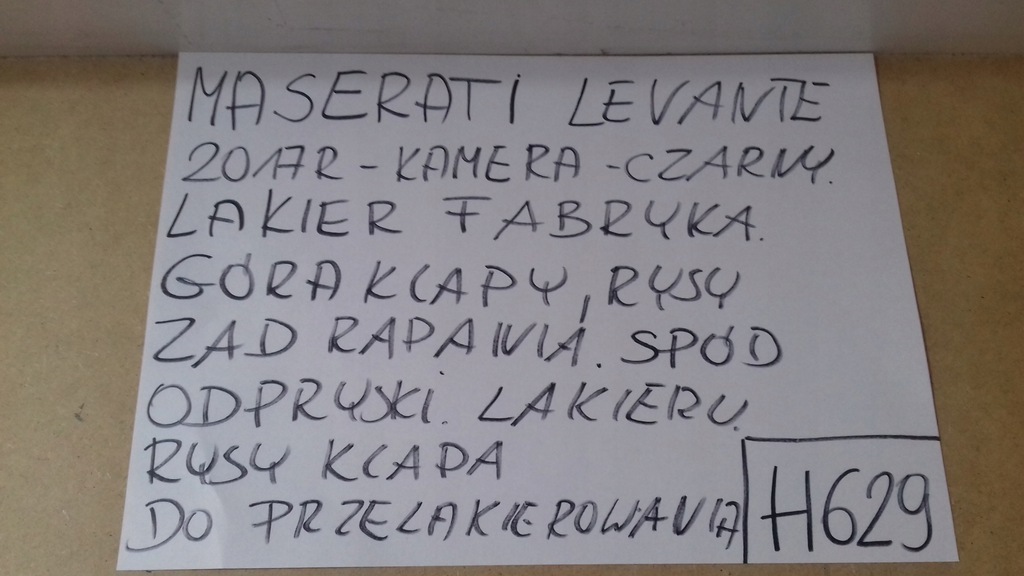 MASERATI LEVANTE
2017R - KAMERA - CZARNY.
LAKIER FABRYKA.
GÓRA KLAPY, RYSY
ZAD RAPANIA. SPÓD
ODPRYSKI. LAKIERU.
RYSY KLAPA
DO PRZELAKIEROWANIA
H629